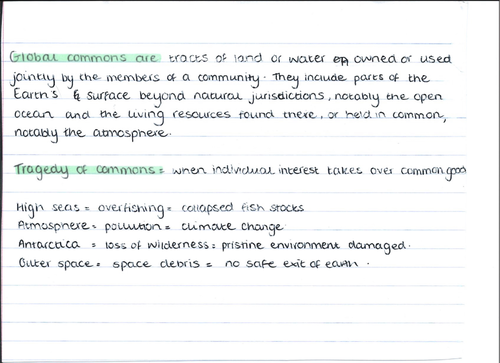 Global commons are tracts of land or water owned or used
jointly by the members of a community. They include parts of the
Earth's surface beyond natural jurisdictions, notably the open
ocean and the living resources found there, or held in common,
notably the atmosphere.
Tragedy of commons = when individual interest takes over common good
High seas = overfishing = collapsed fish stocks
Atmosphere = pollution = climate change
Antarctica = loss of wilderness = pristine environment damaged.
Outer space = space debris = no safe exit of earth.